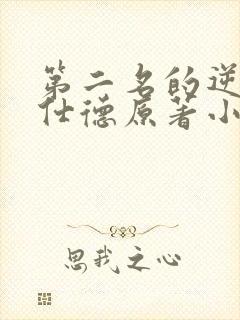 第二名的逆
仕德原著小
思我之心